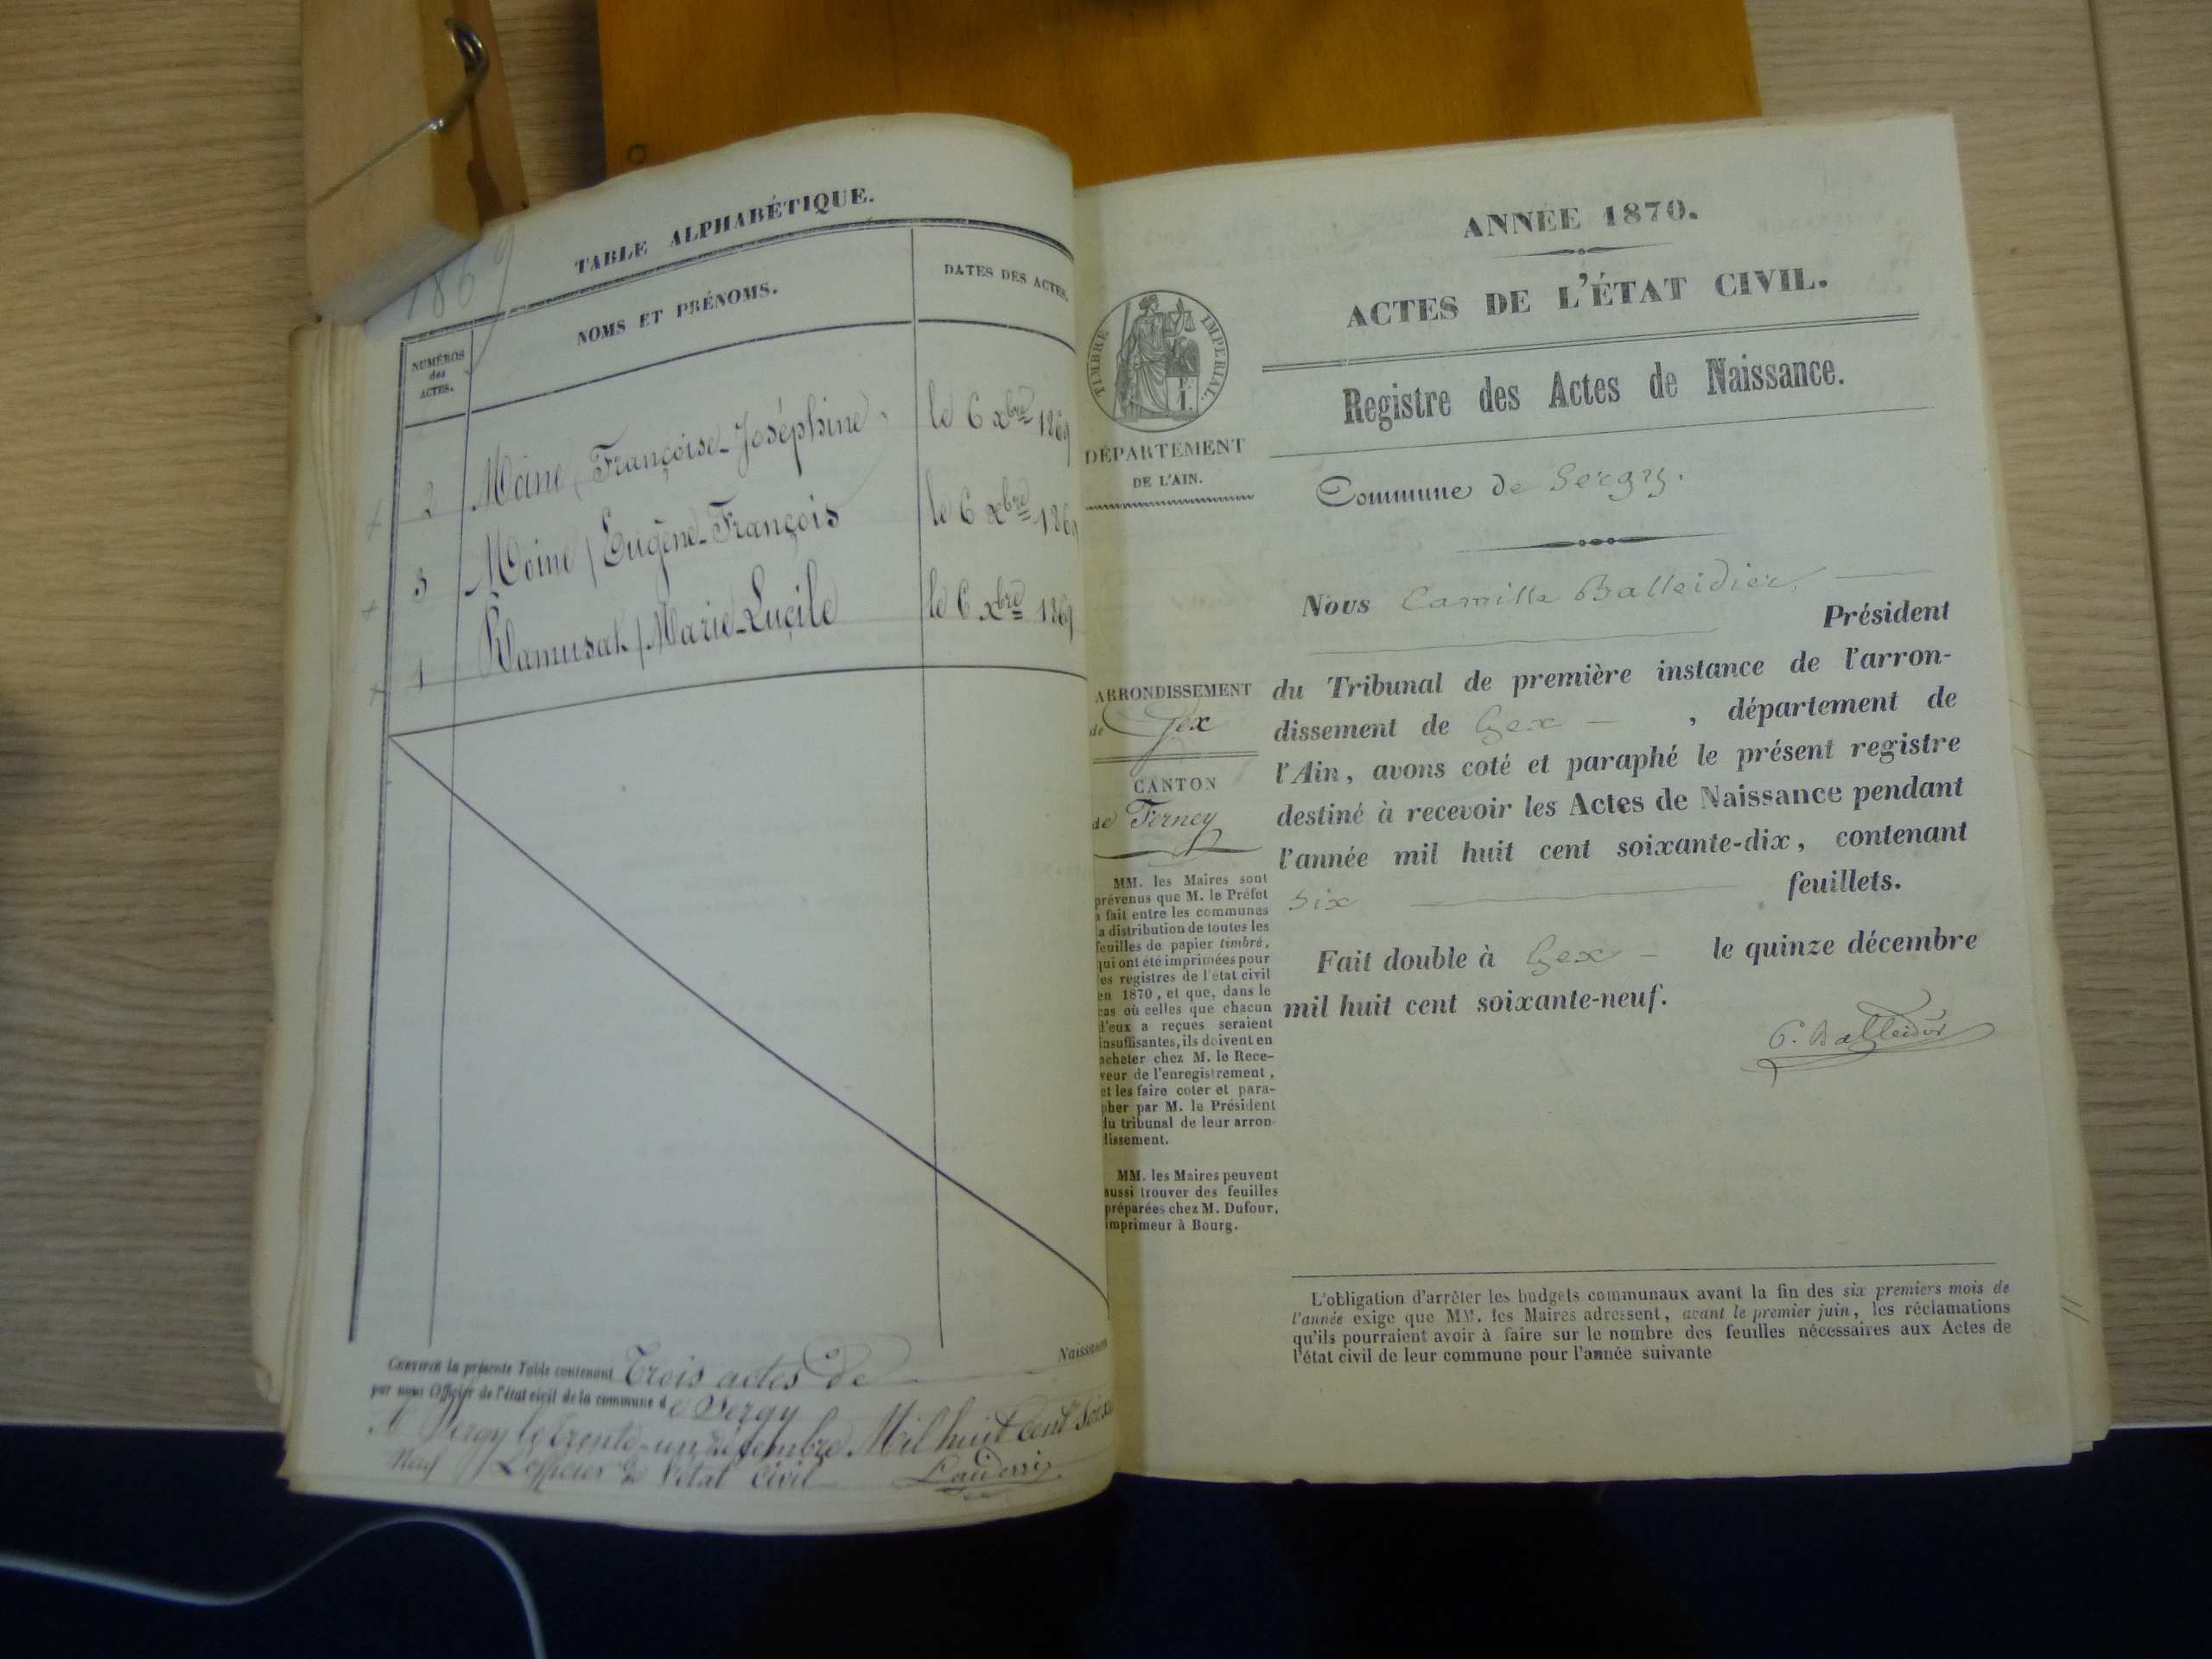 1869
TABLE ALPHABÉTIQUE.
NUMÉROS
des
ACTES.
NOMS ET PRÉNOMS.
DATES DES ACTES.
2 Moine / Françoise-Joséphine le 6 xbre 1869
3 Moine / Eugène-François le 6 xbre 1869
1 Ramusat / Marie-Luçile le 6 xbre 1869
Certifié la présente Table contenant Trois actes de Naissance
par nous Officier de l'état civil de la commune de Sergy
A Sergy le trente-un décembre Mil huit Cent
Neuf L'officier de l'état Civil
ANNÉE 1870.
ACTES DE L'ÉTAT CIVIL.
Registre des Actes de Naissance.
TIMBRE IMPERIAL.
DÉPARTEMENT
DE L'AIN.
Commune de Sergy.
Nous Camille Balleidier, Président
du Tribunal de première instance de l'arron-
dissement de Gex , département de
l'Ain, avons coté et paraphé le présent registre
destiné à recevoir les Actes de Naissance pendant
l'année mil huit cent soixante-dix, contenant
six feuillets.
Fait double à Gex le quinze décembre
mil huit cent soixante-neuf.
C. Balleidier
ARRONDISSEMENT
de Gex
CANTON
de Ferney
MM. les Maires sont
prévenus que M. le Préfet
a fait entre les communes
la distribution de toutes les
feuilles de papier timbré,
qui ont été imprimées pour
les registres de l'état civil
en 1870, et que, dans le
cas où celles que chacun
d'eux a reçues seraient
insuffisantes, ils doivent en
acheter chez M. le Rece-
veur de l'enregistrement,
et les faire coter et para-
pher par M. le Président
du tribunal de leur arron-
dissement.
MM. les Maires peuvent
aussi trouver des feuilles
préparées chez M. Dufour,
imprimeur à Bourg.
L'obligation d'arrêter les budgets communaux avant la fin des six premiers mois de
l'année exige que MM. les Maires adressent, avant le premier juin, les réclamations
qu'ils pourraient avoir à faire sur le nombre des feuilles nécessaires aux Actes de
l'état civil de leur commune pour l'année suivante